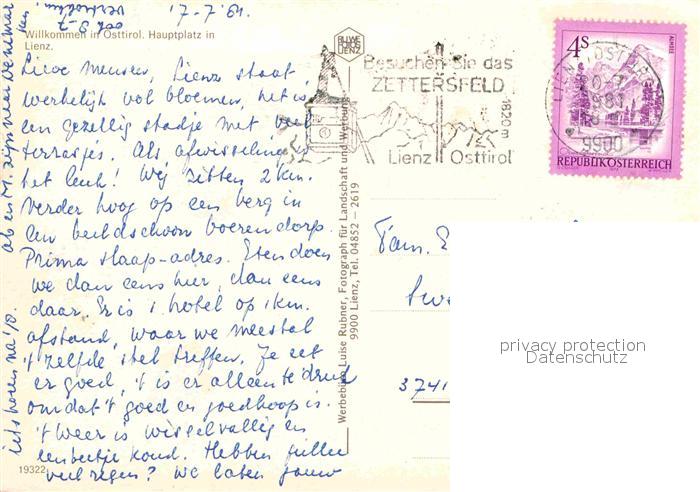 7-7-'81.
Willkommen in Osttirol. Hauptplatz in
Lienz.
Lieve mensen, Lienz staat
werkelijk vol bloemen, het is
een gezellig stadje met veel
terrasjes. Als afwisseling is
het leuk! Wij zitten 2 km.
verder hoog op een berg in
een beeldschoon boerendorp.
Prima slaap-adres. Eten doen
we dan eens hier, dan eens
daar. Er is 1 hotel op 1 km.
afstand, waar we meestal
't zelfde stel treffen. Je eet
er goed, 't is er alleen te druk
omdat 't goed en goedkoop is.
't Weer is wisselvallig en
een beetje koud. Hebben jullie
veel regen? We laten jouw
iets horen na
A en M. zijn naar Denemar
ken
ook 8-7
vertrokken.
BILWE
FOTOS
LIENZ
Besuchen Sie das
ZETTERSFELD
1820 m
Lienz Osttirol
4S
REPUBLIK ÖSTERREICH
9900
Werbebild Luise Rubner, Fotograf für Landschaft und Werbung
9900 Lienz, Tel. 04852 - 2619
Fam.
3741
privacy protection
Datenschutz
19322